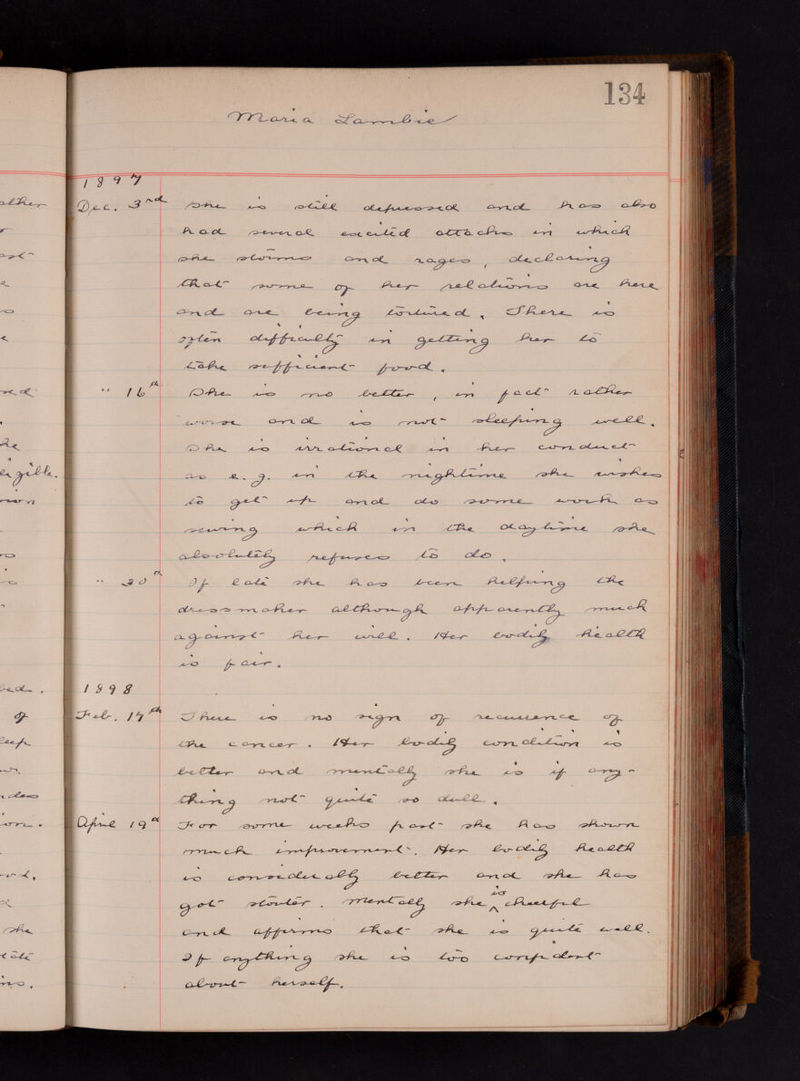 134
Maria Lambie
1897
Dec. 3rd She is still depressed and has also
had several excited attacks in which
she storms and rages, declaring
that some of her relations are here
and are being tortured. There is
often difficulty in getting her to
take sufficient food.
" 16th She is no better, in fact rather
worse and is not sleeping well.
She is irrational in her conduct
as e.g. in the nighttime she wishes
to get up and do some work as
sewing which in the daytime she
absolutely refuses to do.
" 30th Of late she has been helping the
dressmaker although apparently much
against her will. Her bodily health
is fair.
1898
Feb. 17th There is no sign of recurrence of
the cancer. Her bodily condition is
better and mentally she is if any-
thing not quite so dull.
April 19th For some weeks past she has shown
much improvement. Her bodily health
is considerably better and she has
got stouter. Mentally she is cheerful
and affirms that she is quite well.
If anything she is too confident
about herself.